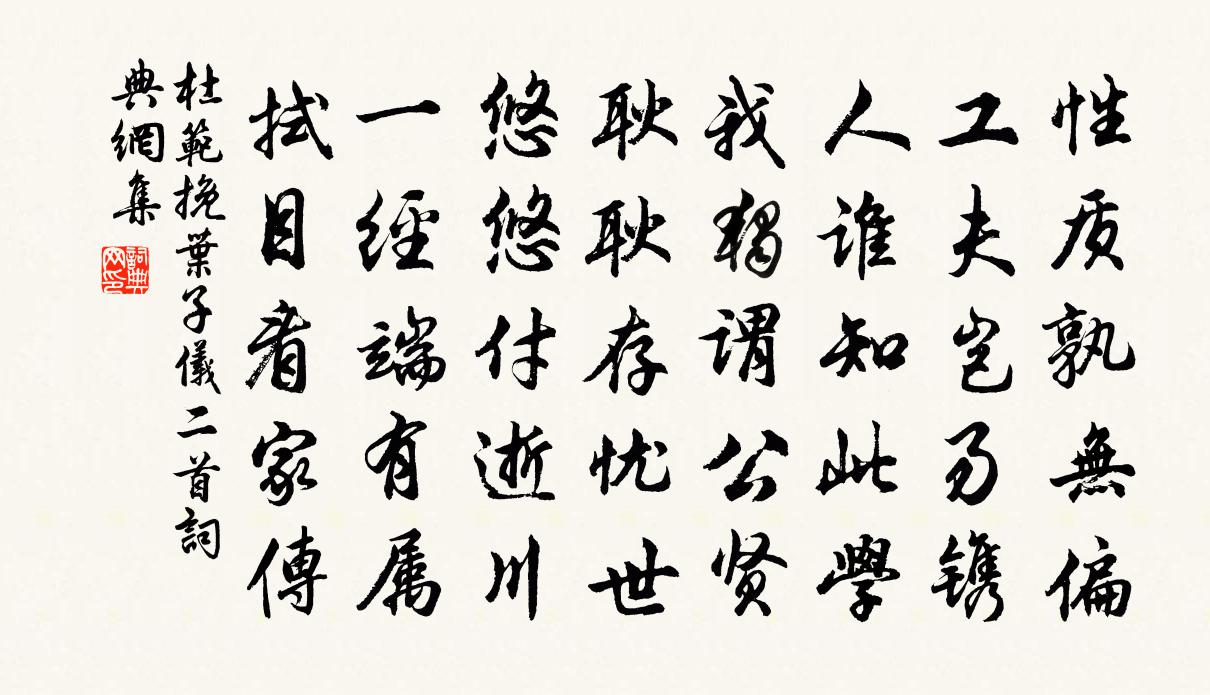 性质孰無偏
工夫岂易镌
人谁知此學
我獨谓公贤
耿耿存忧世
悠悠付逝川
一經端有属
拭目看家傳
杜範挽葉子儀二首詞
典網集
詞典网印